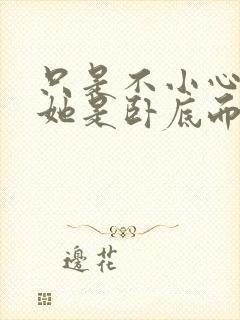 只是不小心
她是卧底而
邊花